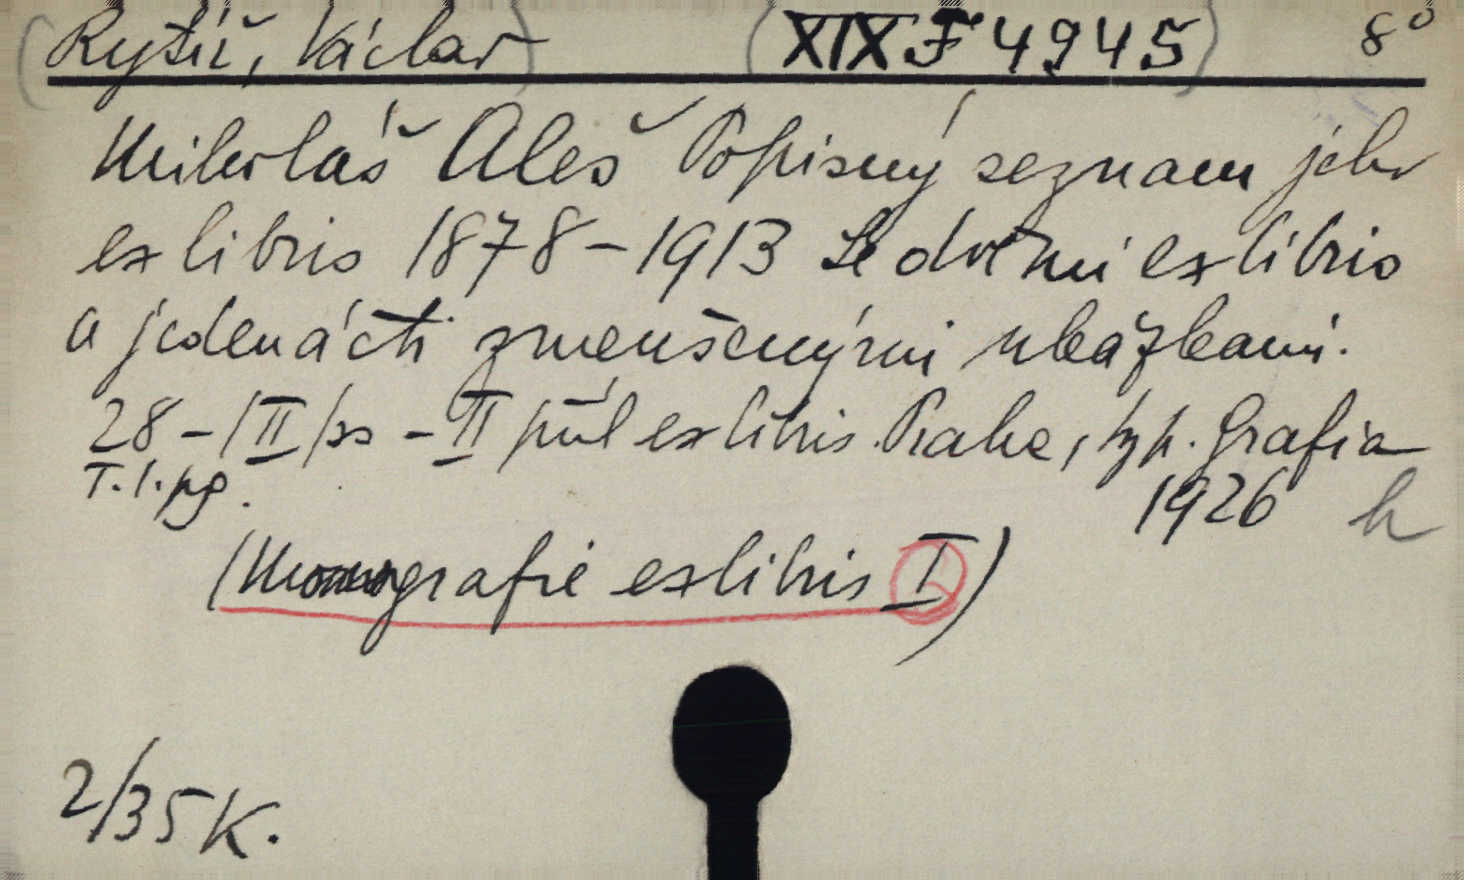 Rytíř, Václav (XIX F 4945) 8°
Mikoláš Aleš Popisný seznam jeho
exlibris 1878-1913 Se dvěmi exlibris
a jedenácti zmenšenými ukázkami.
28-/II/ss - II příl exlibris. Praha, typ. Grafia
T. l. pg. 1926 h
(Monografie exlibris I)
2/35 K.